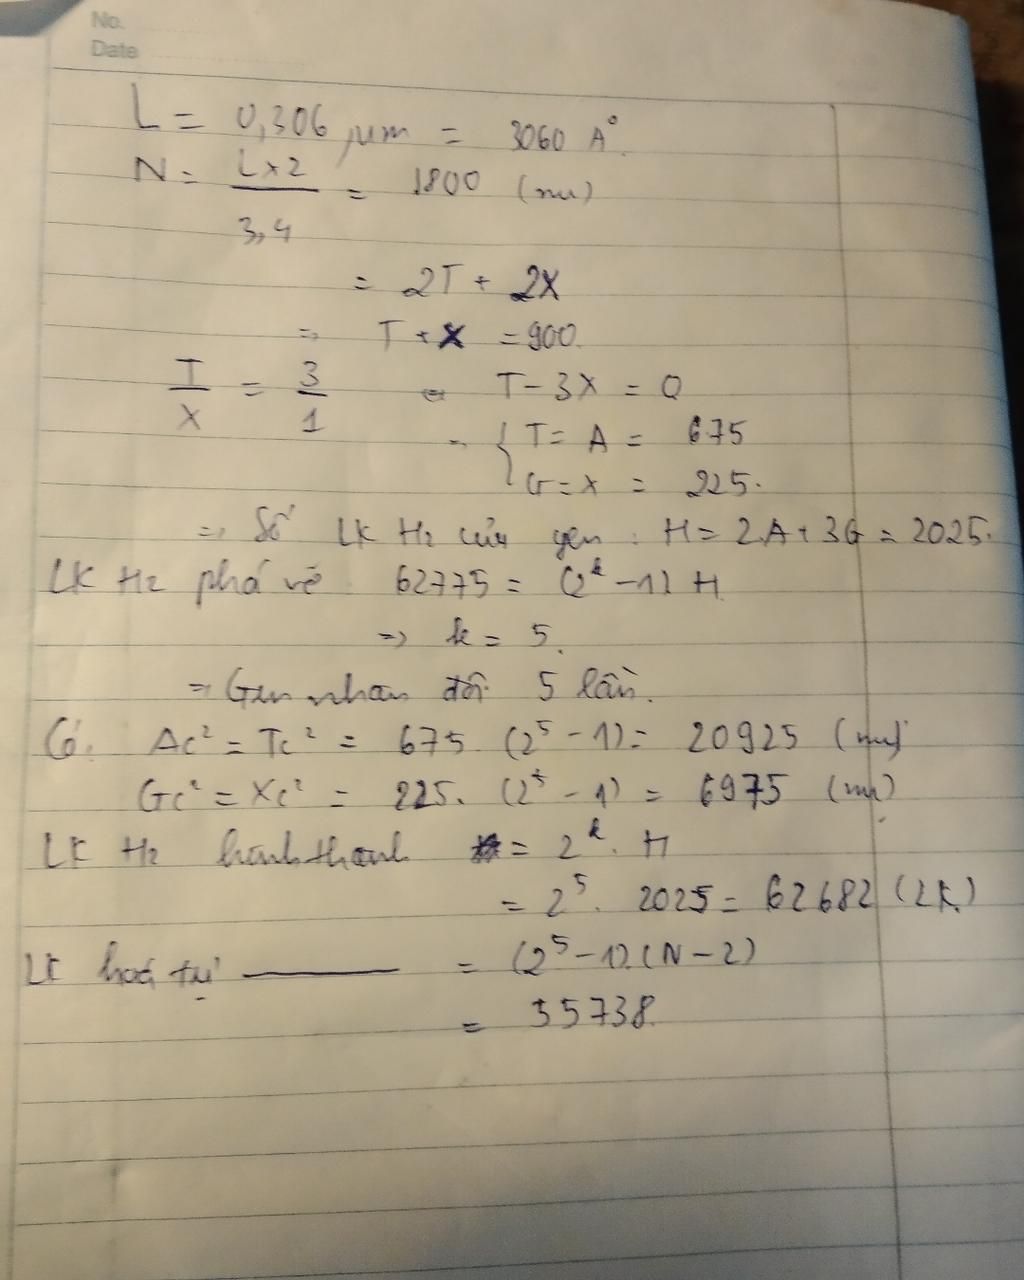 No.
Date
L = 0,306 µm = 3060 A°.
N = \frac{L x 2}{3,4} = 1800 (nu)
= 2T + 2X
=> T + X = 900.
\frac{T}{X} = \frac{3}{1} T - 3X = 0
{ T = A = 675
G = X = 225.
=> Số LK H2 của gen : H = 2.A + 3G = 2025.
LK H2 phá vỡ 62775 = (2^k - 1) H
=> k = 5.
=> Gen nhân đôi 5 lần.
Có. Ac² = Tc² = 675 . (2^5 - 1) = 20925 (nu)
Gc² = Xc² = 225. (2^5 - 1) = 6975 (nu)
LK H2 hình thành = 2^k. H
= 2^5. 2025 = 62682 (LK)
LK hoá trị —— = (2^5 - 1).(N - 2)
= 55738.